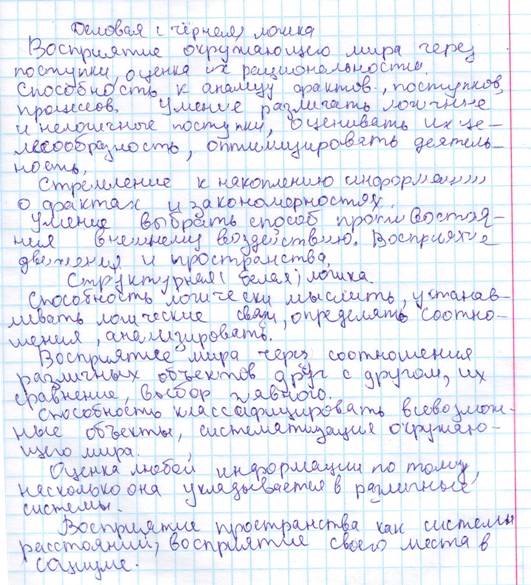 Деловая (чёрная) логика
Восприятие окружающего мира через
поступки, оценка их рациональности.
Способность к анализу фактов, поступков,
процессов. Умение различать логичные
и нелогичные поступки, оценивать их це-
лесообразность, оптимизировать деятель-
ность.
Стремление к накоплению информации
о фактах и закономерностях.
Умение выбрать способ противостоя-
ния внешнему воздействию. Восприятие
движения и пространства.
Структурная (белая) логика.
Способность логически мыслить, устанав-
ливать логические связи, определять соотно-
шения, анализировать.
Восприятие мира через соотношения
различных объектов друг с другом, их
сравнение, выбор главного.
Способность классифицировать всевозмож-
ные объекты, систематизация окружаю-
щего мира.
Оценка любой информации по тому,
насколько она укладывается в различные
системы.
Восприятие пространства как системы
расстояний, восприятие своего места в
социуме.